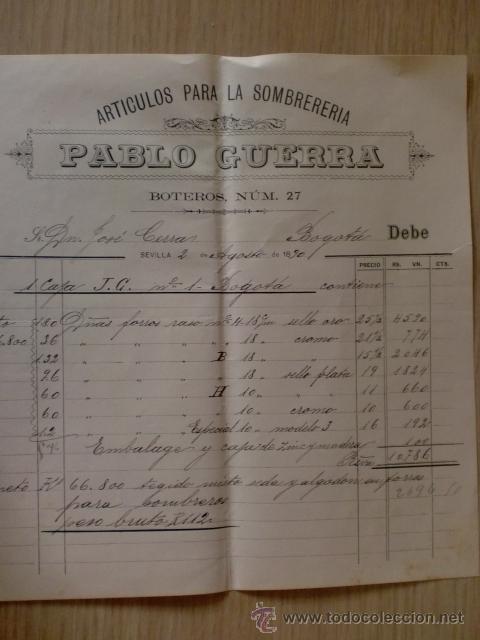 ARTICULOS PARA LA SOMBRERERIA
PABLO GUERRA
BOTEROS, NÚM. 27
Sr. Dn. José Cerra Bogotá Debe
SEVILLA 2 de Agosto de 1890
PRECIO RS. VN. CTS.
1 Caja J. C. nº 1 - Bogotá contiene
180 Dnas forros raso nº 4-18 sello oro 25½ 4590
36 " " " " 18 " cromo 21½ 774
132 " " " B 18 " " 15½ 2046
96 " " " " 18 " sello plata 19 1824
60 " " " H 10 " " 11 660
60 " " " " 10 " cromo 10 600
12 " " Especial 10 " modelo 3 16 192
Embalage y caja de zinc y madera 100
Rvon 10786
66.800 tegido misto seda y algodon en forros 2696 50
para sombreros
peso bruto K 112
www.todocoleccion.net